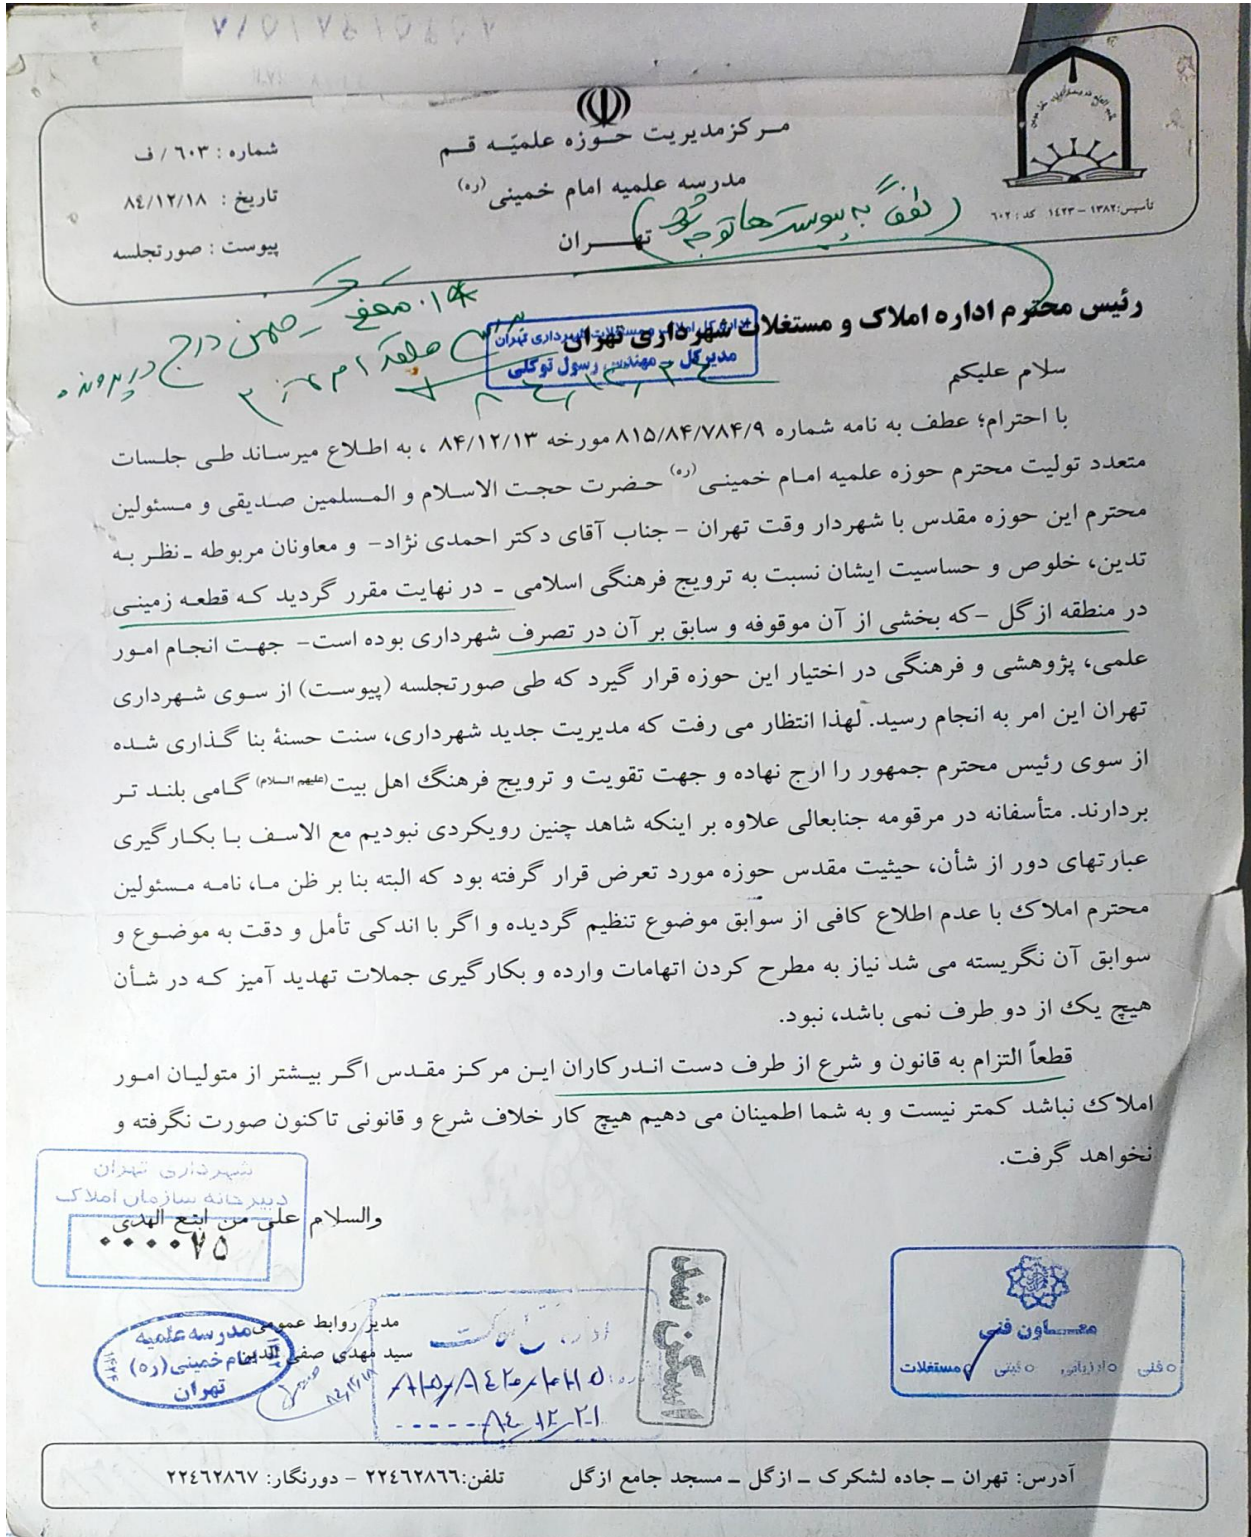 مرکز مدیریت حوزه علمیّه قم
مدرسه علمیه امام خمینی (ره)
تهران
شماره : ٦٠٣ / ف
تاریخ : ٨٤/١٢/١٨
پیوست : صورتجلسه
تأسیس: ١٣٨٢ – ١٤٢٣ کد : ٦٠٢
(لطفاً به پیوست‌ها توجه شود)
رئیس محترم اداره املاک و مستغلات شهرداری تهران
اداره کل املاک و مستغلات شهرداری تهران
مدیرکل - مهندس رسول توکلی
سلام علیکم
با احترام؛ عطف به نامه شماره ٨١٥/٨۴/٧٨۴/٩ مورخه ٨۴/١٢/١٣ ، به اطلاع میرساند طی جلسات
متعدد تولیت محترم حوزه علمیه امام خمینی (ره) حضرت حجت الاسلام و المسلمین صدیقی و مسئولین
محترم این حوزه مقدس با شهردار وقت تهران – جناب آقای دکتر احمدی نژاد– و معاونان مربوطه – نظر به
تدین، خلوص و حساسیت ایشان نسبت به ترویج فرهنگی اسلامی – در نهایت مقرر گردید که قطعه زمینی
در منطقه ازگل –که بخشی از آن موقوفه و سابق بر آن در تصرف شهرداری بوده است– جهت انجام امور
علمی، پژوهشی و فرهنگی در اختیار این حوزه قرار گیرد که طی صورتجلسه (پیوست) از سوی شهرداری
تهران این امر به انجام رسید. لهذا انتظار می رفت که مدیریت جدید شهرداری، سنت حسنهٔ بنا گذاری شده
از سوی رئیس محترم جمهور را ارج نهاده و جهت تقویت و ترویج فرهنگ اهل بیت (علیهم السلام) گامی بلند تر
بردارند. متأسفانه در مرقومه جنابعالی علاوه بر اینکه شاهد چنین رویکردی نبودیم مع الاسف با بکارگیری
عبارتهای دور از شأن، حیثیت مقدس حوزه مورد تعرض قرار گرفته بود که البته بنا بر ظن ما، نامه مسئولین
محترم املاک با عدم اطلاع کافی از سوابق موضوع تنظیم گردیده و اگر با اندکی تأمل و دقت به موضوع و
سوابق آن نگریسته می شد نیاز به مطرح کردن اتهامات وارده و بکارگیری جملات تهدید آمیز که در شأن
هیچ یک از دو طرف نمی باشد، نبود.
قطعاً التزام به قانون و شرع از طرف دست اندرکاران این مرکز مقدس اگر بیشتر از متولیان امور
املاک نباشد کمتر نیست و به شما اطمینان می دهیم هیچ کار خلاف شرع و قانونی تاکنون صورت نگرفته و
نخواهد گرفت.
والسلام علی من اتبع الهدی
شهرداری تهران
دبیرخانه سازمان املاک
٠٠٠٠٧٥
مدیر روابط عمومی
سید مهدی صفی الدین
مدرسه علمیه
امام خمینی (ره)
تهران
٨٤/١٢/٢١
اسکن شد
معاون فنی
فنی ارزیابی ثبتی مستغلات
آدرس: تهران – جاده لشکرک – ازگل – مسجد جامع ازگل تلفن:٢٢٤٦٢٨٦٦ – دورنگار: ٢٢٤٦٢٨٦٧